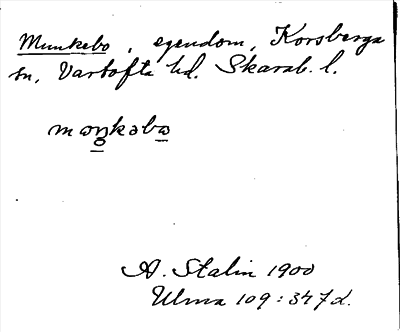 Munkebo, egendom, Korsberga
sn, Vartofta hd. Skarab. l.
məŋkəbə
A. Stalin 1900
Ulma 109:347d.